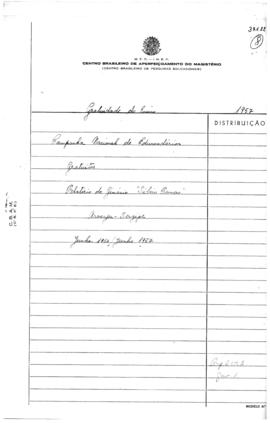 39888
(8)
M.E.C. - I.N.E.P.
CENTRO BRASILEIRO DE APERFEIÇOAMENTO DO MAGISTÉRIO
(CENTRO BRASILEIRO DE PESQUISAS EDUCACIONAIS)
Gratuidade do Ensino 1957
DISTRIBUIÇÃO
Campanha Nacional de Educandários
Gratuitos
Relatório do Ginásio "Silvio Romero"
Sergipe
Junho 1956/Junho 1957